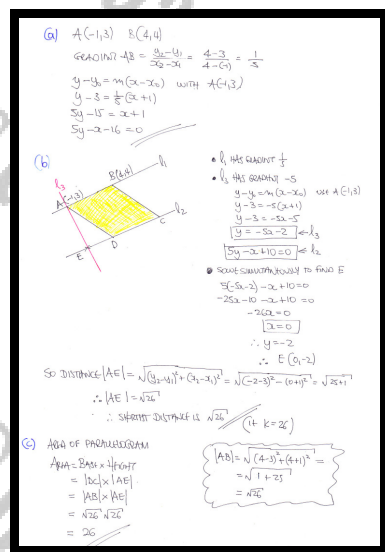 (a) A(-1,3) B(4,4)
GRADIENT AB = (y₂-y₁)/(x₂-x₁) = (4-3)/(4-(-1)) = 1/5
y-y₀ = m(x-x₀) WITH A(-1,3)
y-3 = 1/5(x+1)
5y-15 = x+1
5y-x-16 = 0
(b)
l₃
B(4,4)
l₁
A(-1,3)
l₂
C
D
E
• l₁ HAS GRADIENT 1/5
• l₃ HAS GRADIENT -5
y-y₀ = m(x-x₀) USE A(-1,3)
y-3 = -5(x+1)
y-3 = -5x-5
y = -5x-2 ← l₃
5y-x+10=0 ← l₂
• SOLVE SIMULTANEOUSLY TO FIND E
5(-5x-2)-x+10=0
-25x-10-x+10=0
-26x=0
x=0
∴ y=-2
∴ E(0,-2)
SO DISTANCE |AE| = √((y₂-y₁)²+(x₂-x₁)²) = √((-2-3)²+(0+1)²) = √(25+1)
∴ |AE| = √26
∴ SHORTEST DISTANCE IS √26 (IE K=26)
(c) AREA OF PARALLELOGRAM
AREA = BASE × HEIGHT
= |DC| × |AE|
= |AB| × |AE|
= √26 √26
= 26
|AB| = √((4-3)²+(4+1)²) =
= √(1+25)
= √26